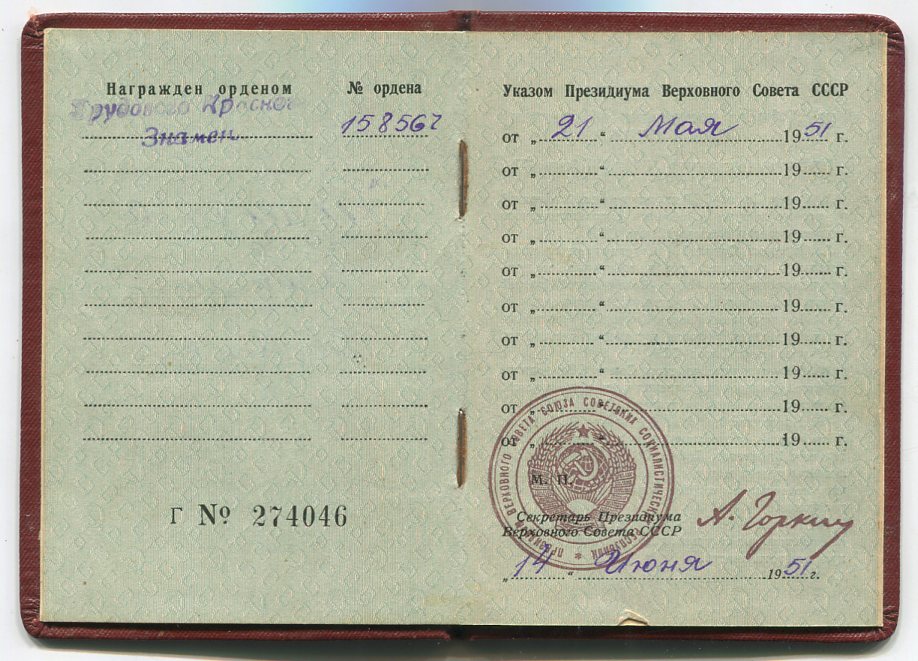 Награжден орденом
Трудового Красного
Знамен
№ ордена
158567
Г № 274046
Указом Президиума Верховного Совета СССР
от „ 21 “ Мая 1951 г.
от „ “ 19 г.
от „ “ 19 г.
от „ “ 19 г.
от „ “ 19 г.
от „ “ 19 г.
от „ “ 19 г.
от „ “ 19 г.
от „ “ 19 г.
от „ “ 19 г.
ПРЕЗИДИУМ ВЕРХОВНОГО СОВЕТА СОЮЗА СОВЕТСКИХ СОЦИАЛИСТИЧЕСКИХ РЕСПУБЛИК
М. П.
Секретарь Президиума
Верховного Совета СССР
А. Горкин
„ 14 “ Июня 1951 г.